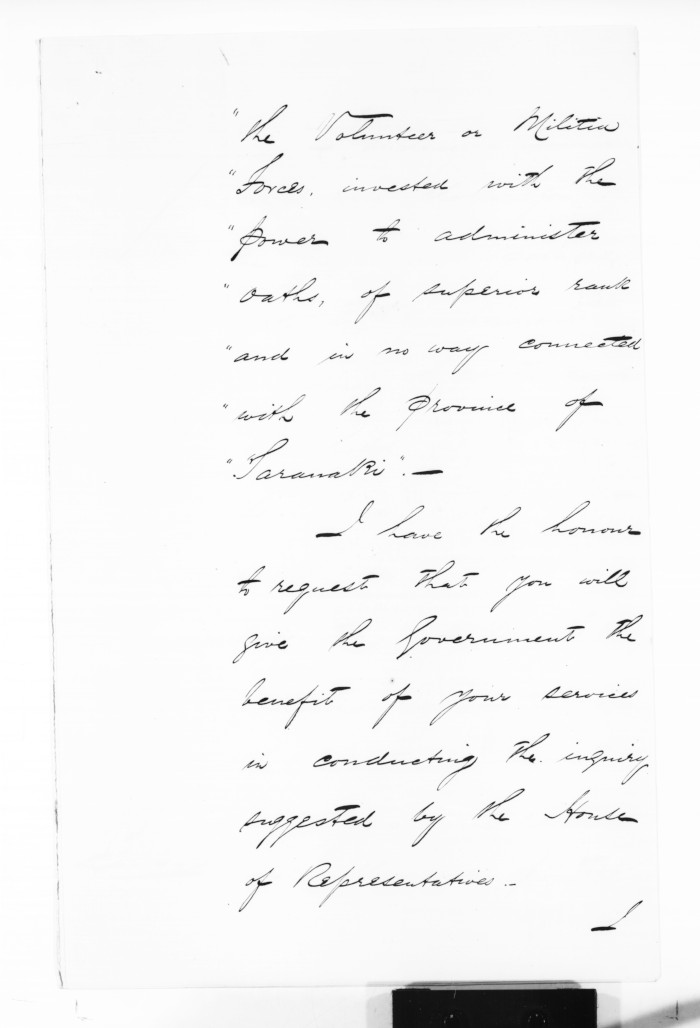 "the Volunteer or Militia
"Forces, invested with the
"power to administer
"oaths, of superior rank
"and in no way connected
"with the Province of
"Taranaki".—
I have the honour
to request that you will
give the Government the
benefit of your services
in conducting the inquiry
suggested by the House
of Representatives.—
I